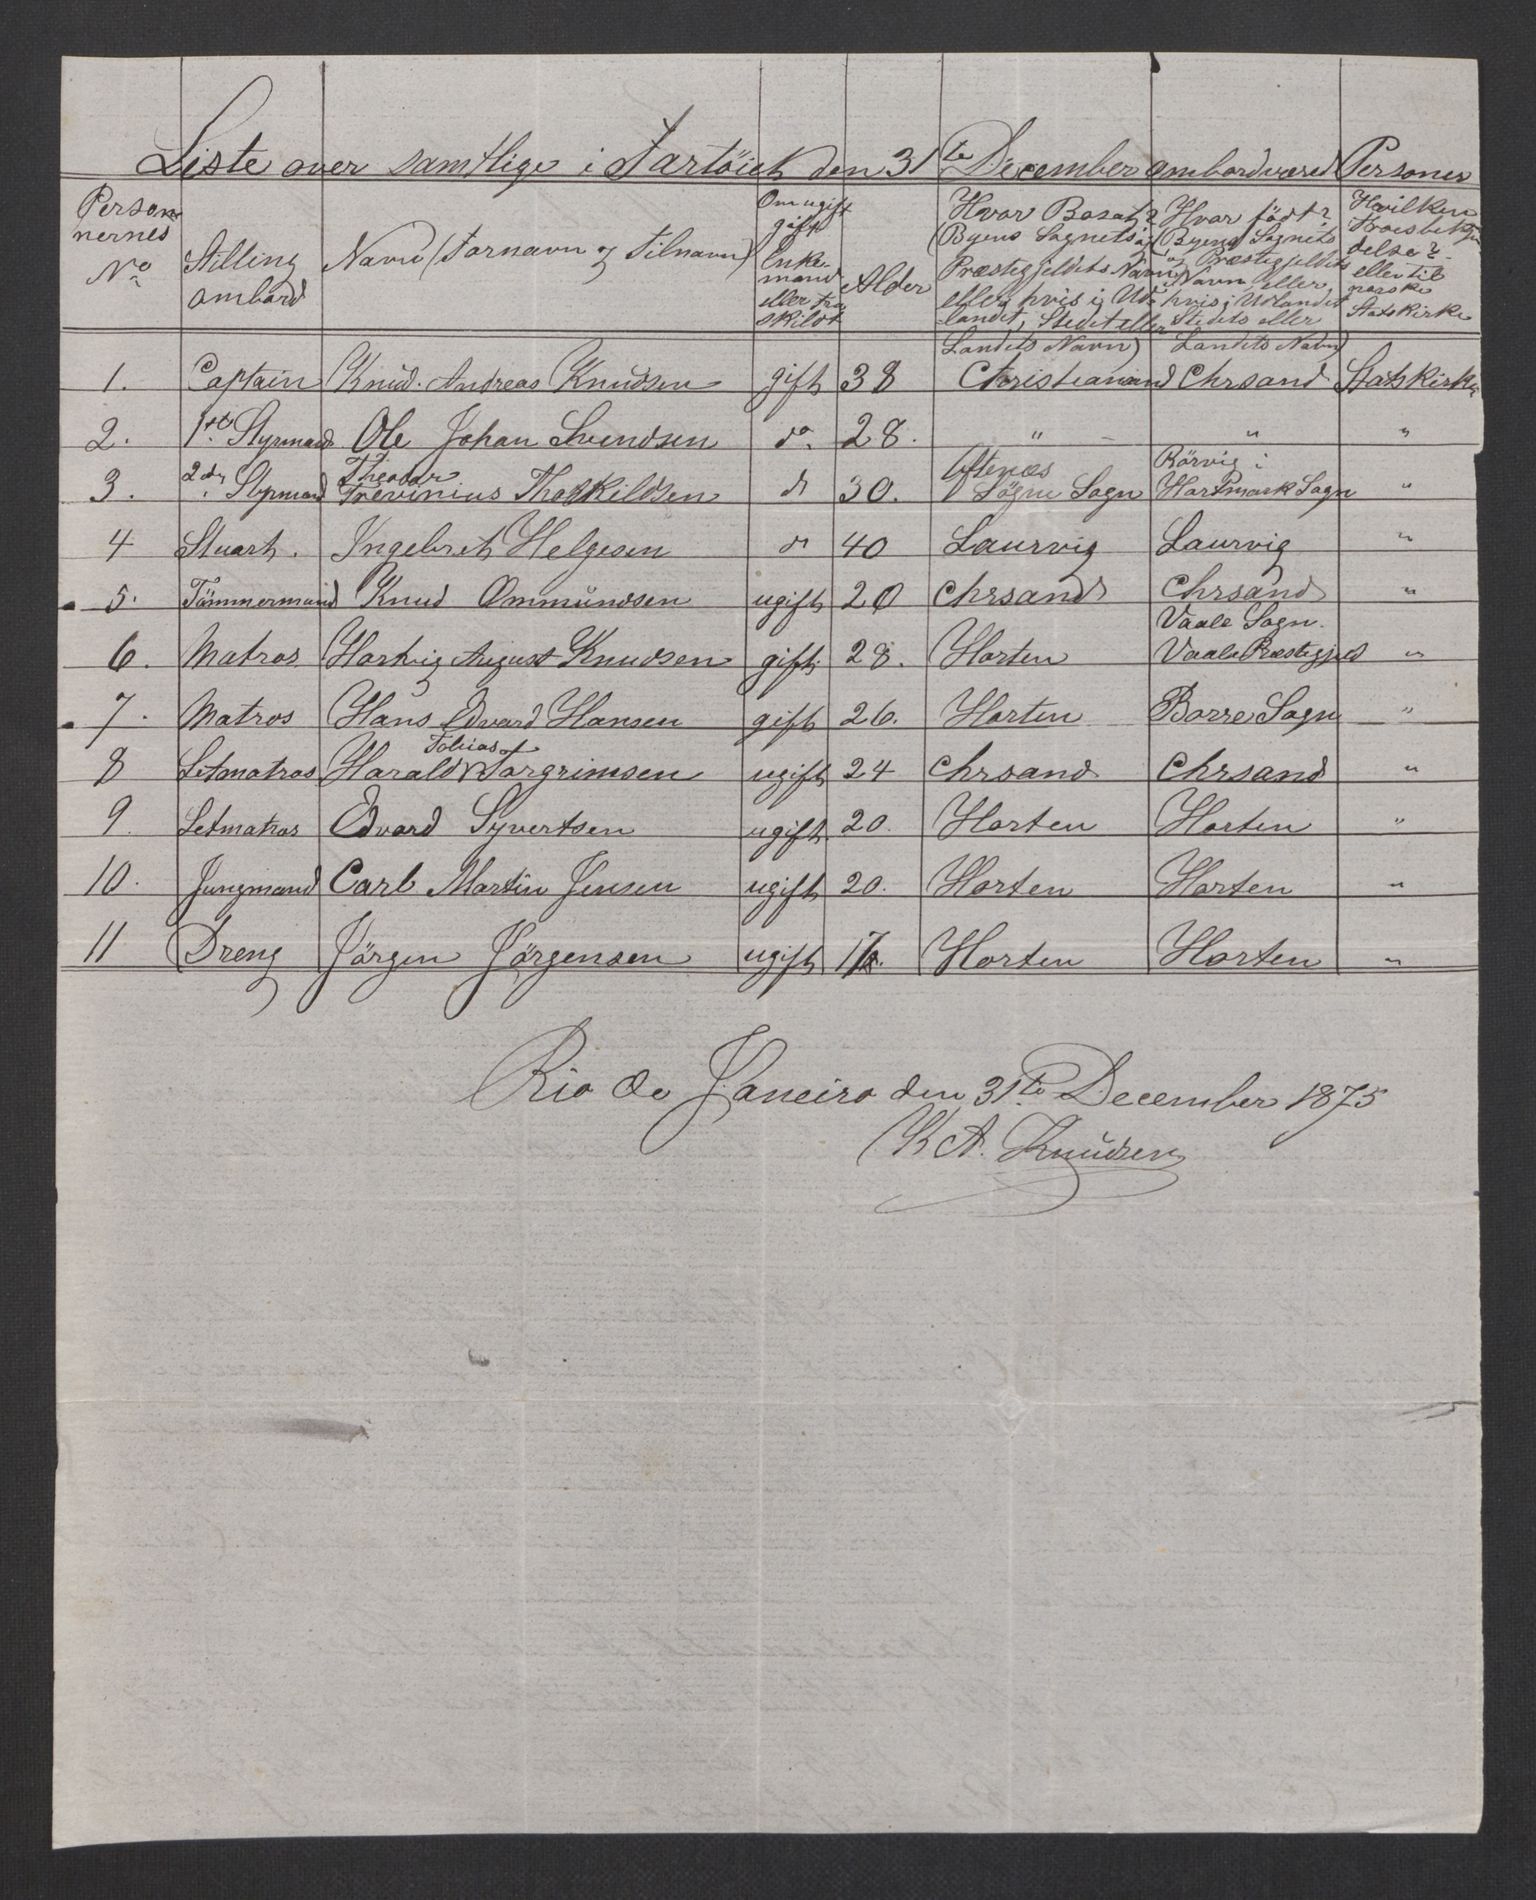 Liste over samtlige i Fartöiet den 31te December ombordværed Personer
Personernernes No | Stilling ombord | Navn (Fornavn og Tilnavn) | Om ugift gift Enkemand eller fraskildt | Alder | Hvor Bosat? (Byens Sognets og Præstegjeldets Navn eller, hvis i Udlandet, Stedet eller Landets Navn) | Hvor født? (Byens Sognets og Præstegjeldets Navn eller, hvis i Udlandet Stedets eller Landets Navn) | Hvilken Troesbekjendelse? eller til norske Statskirke
1. | Captain | Knud. Andreas Knudsen | gift | 38 | Christiansand | Chrsand | Statskirke
2. | 1ste Styrmand | Ole Johan Svendsen | do. | 28. | " | " | "
3. | 2den Styrmand | Theodor Trevinius Thorkildsen | do | 30. | Søgne Sogn | Rörvig i Hartmark Sogn | "
4 | Stuart. | Ingebret Helgesen | do | 40 | Laurvig | Laurvig | "
5. | Tömmermand | Knud Ommundsen | ugift | 20 | Chrsand | Chrsand | "
6. | Matros | Hartvig August Knudsen | gift. | 28. | Horten | Vaale Sogn. Vaale Præstegjeld | "
7. | Matros | Hans Edvard Hansen | gift | 26. | Horten | Borre Sogn | "
8 | Letmatros | Harald Tobias Torgrimsen | ugift | 24 | Chrsand | Chrsand | "
9. | Letmatros | Edvard Syvertsen | ugift. | 20. | Horten | Horten | "
10. | Jungmand | Carl Martin Jensen | ugift | 20. | Horten | Horten | "
11 | Dreng | Jörgen Jörgensen | ugift | 17. | Horten | Horten | "
Rio de Janeiro den 31te December 1875
K A. Knudsen